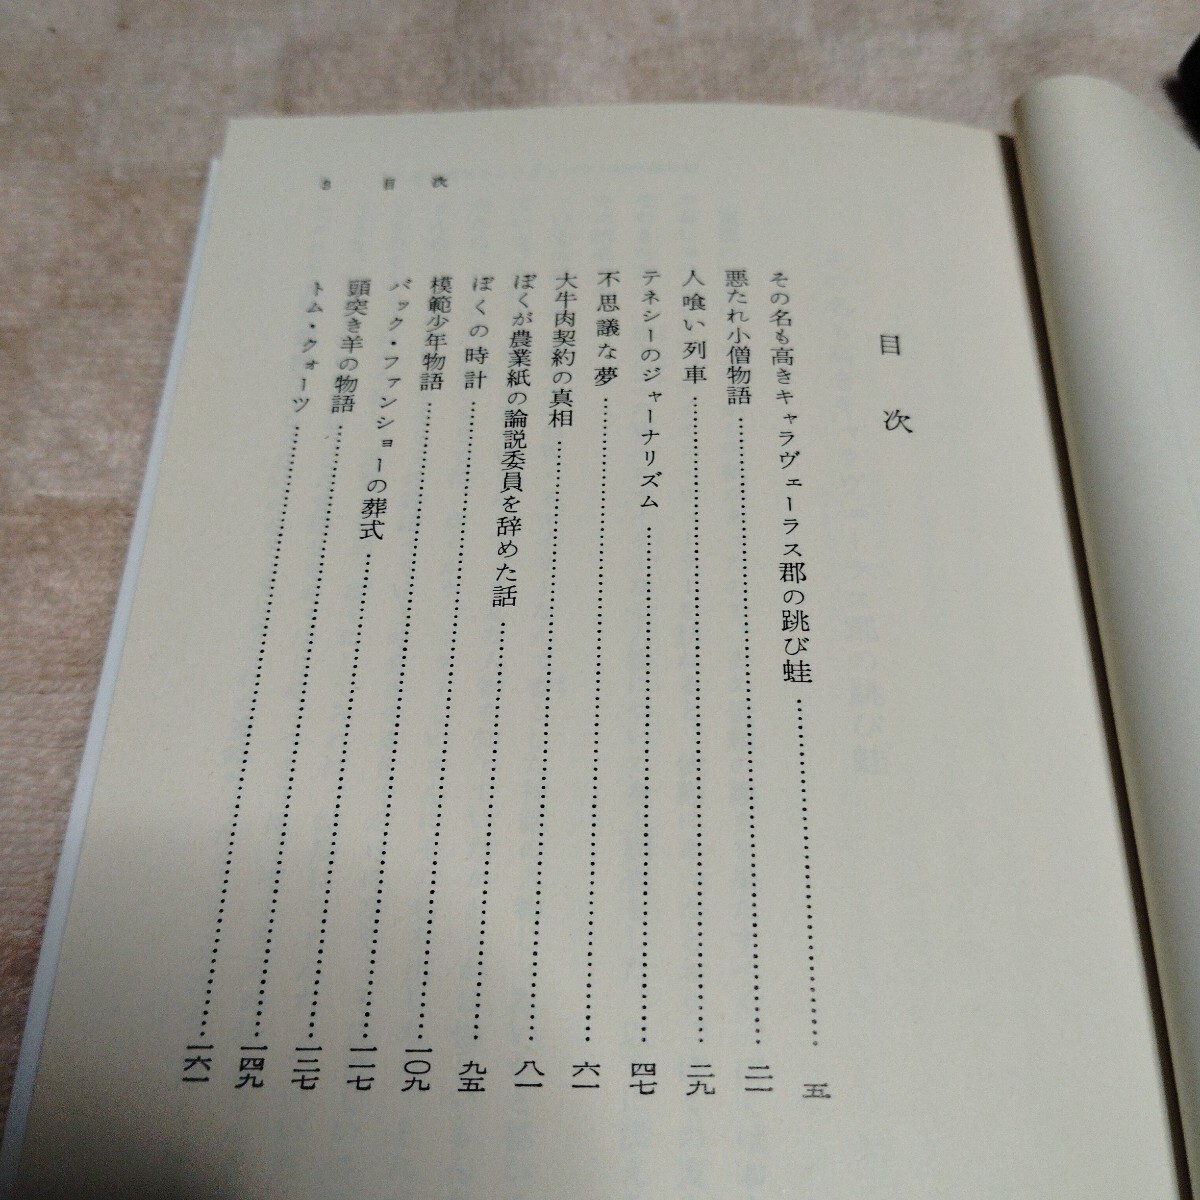 目次
その名も高きキャラヴェーラス郡の跳び蛙……………………五
悪たれ小僧物語……………………二一
人喰い列車……………………二九
テネシーのジャーナリズム……………………四七
不思議な夢……………………六一
大牛肉契約の真相……………………八一
ぼくが農業紙の論説委員を辞めた話……………………九五
ぼくの時計……………………一〇九
模範少年物語……………………一一七
バック・ファンショーの葬式……………………一二七
頭突き羊の物語……………………一四九
トム・クォーツ……………………一六一
3 目次